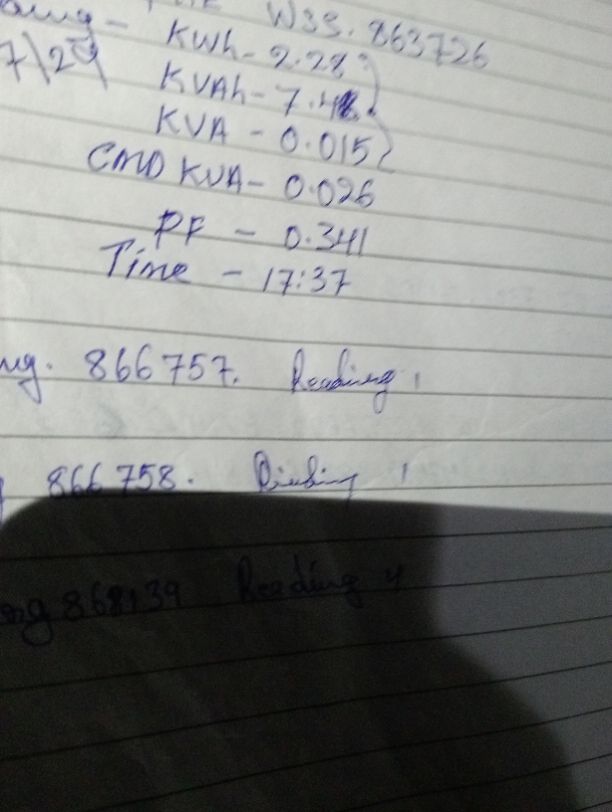 WSS. 863726
KWh - 2.28
7/24
KVAh - 7.48
KVA - 0.015
CMD KVA - 0.026
PF - 0.341
Time - 17:37
866757. Reading 1
866758. Reading 1
868139 Reading 4